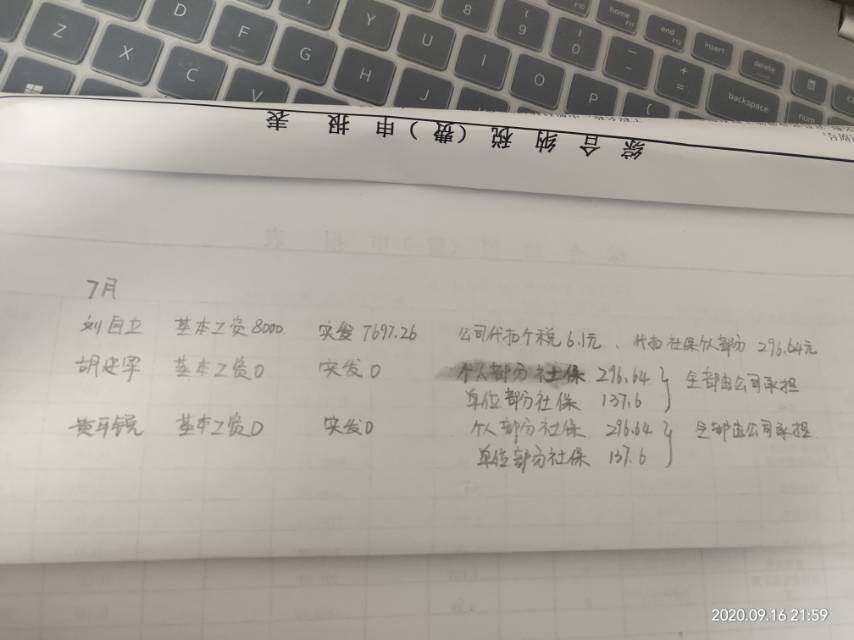 Z X C V D F G H J Y U I O P 8 ( 9 ) 0 — - + = { [ home end insert delete backspace num
综 合 纳 税 (费) 申 报 表
7月
刘自立 基本工资8000 实发7697.26 公司代扣个税6.1元、代扣社保个人部分296.64元
胡建军 基本工资0 实发0 个人部分社保 296.64 全部由公司承担
单位部分社保 137.6
基本工资0 实发0 个人部分社保 296.64 全部由公司承担
单位部分社保 137.6
2020.09.16 21:59